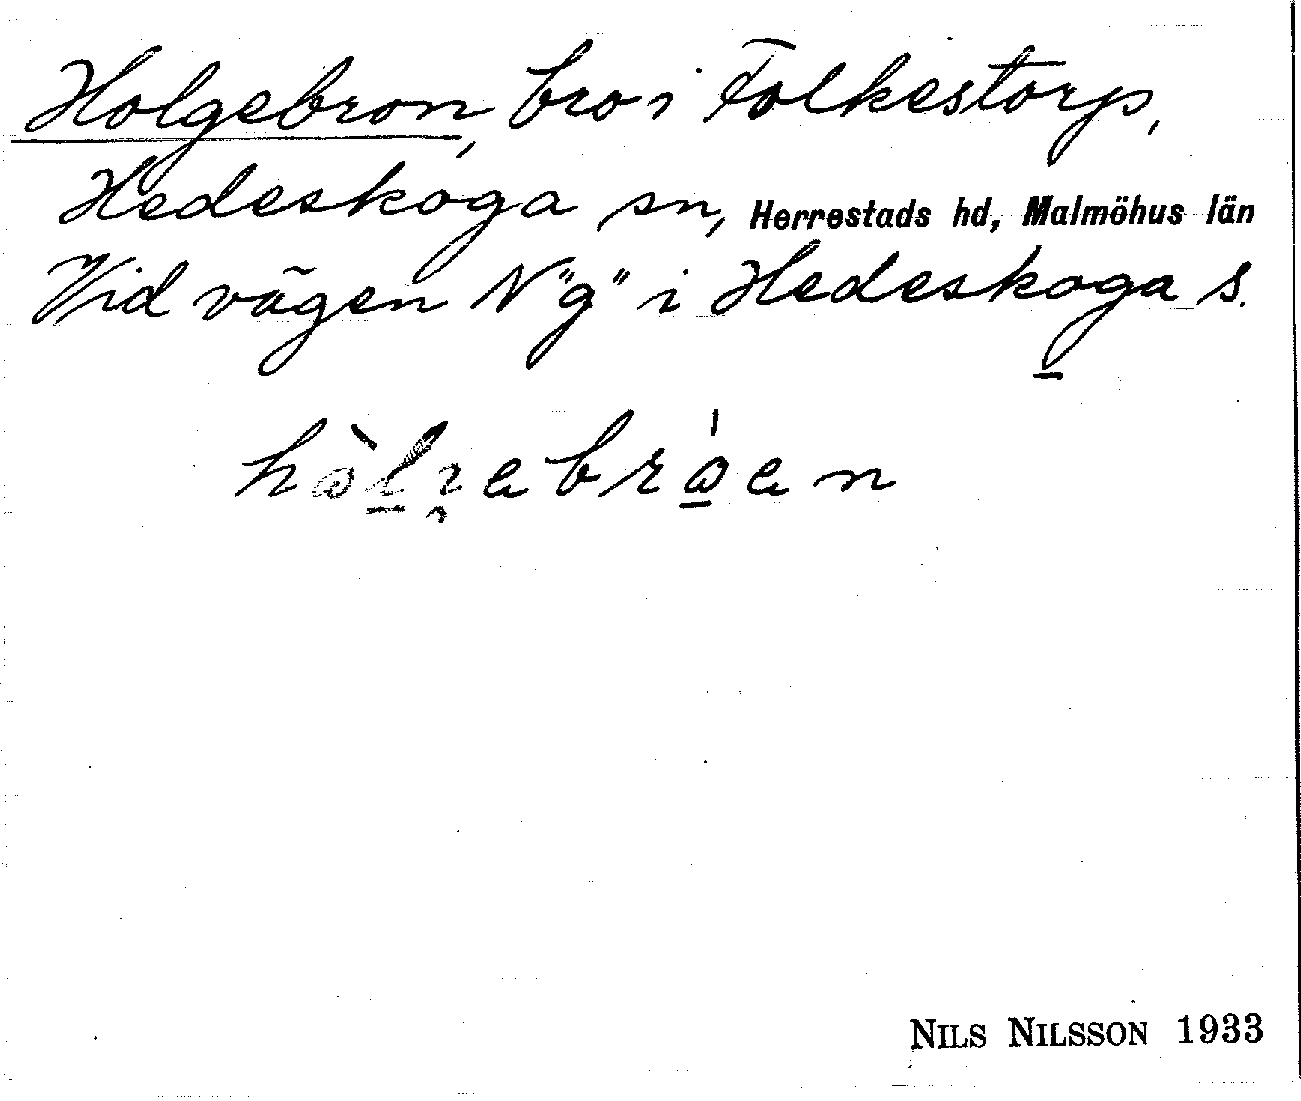 Holgebron, bro i Folkestorp,
Hedeskoga sn, Herrestads hd, Malmöhus län
Vid vägen N "g" i Hedeskoga s.
NILS NILSSON 1933